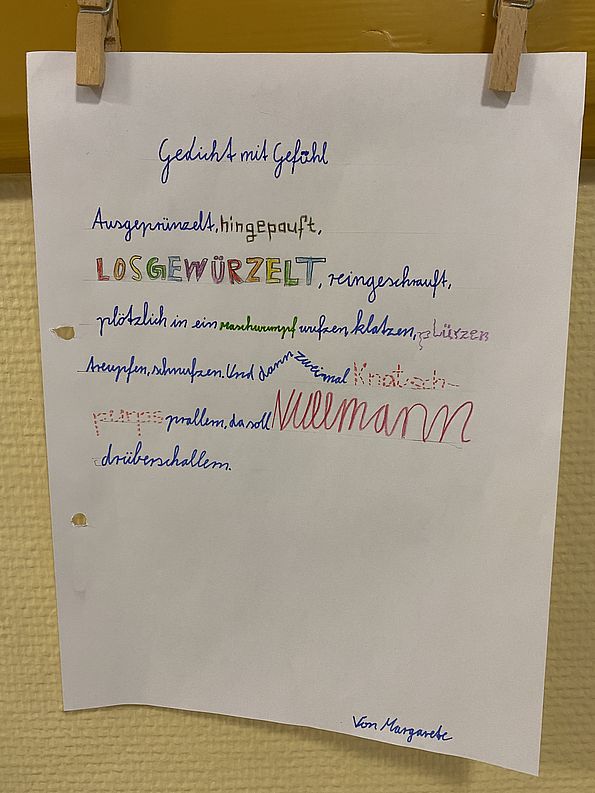 Gedicht mit Gefühl
Ausgeprünzelt, hingepauft,
LOSGEWÜRZELT, reingeschrauft,
plötzlich in ein Maschwumpf wufzen, klatzen, plürzen
treupfen, schnufzen. Und dann zweimal Knatsch-
pumps prallern, da soll Nullmann
drüberschallern.
Von Margarete